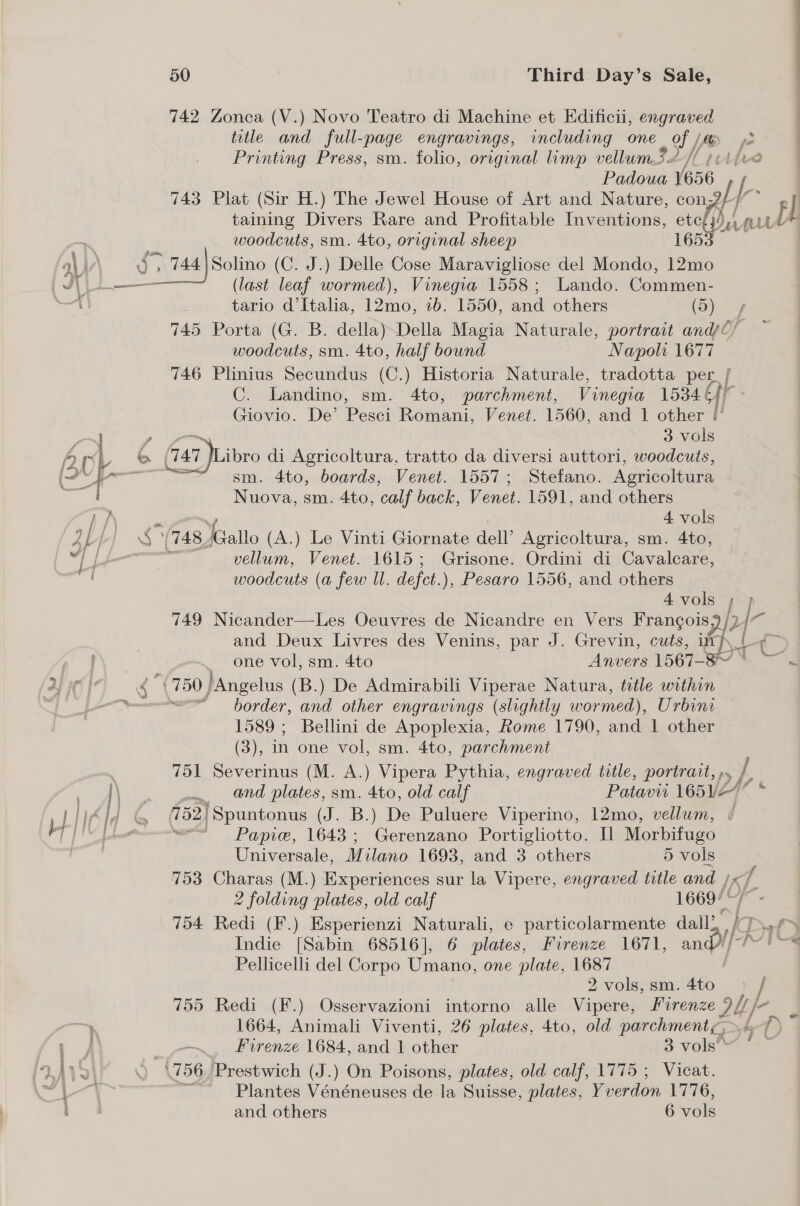 50 Third Day's Sale,
742 Zonca (V.) Novo Teatro di Machine et Edificii, engraved
title and full-page engravings, including one of
Printing Press, sm. folio, original limp vellum
Padoua 1656
743 Plat (Sir H.) The Jewel House of Art and Nature, con-
taining Divers Rare and Profitable Inventions, etc.
woodcuts, sm. 4to, original sheep 1653
744 Solino (C. J.) Delle Cose Maravigliose del Mondo, 12mo
(last leaf wormed), Vinegia 1558; Lando. Commen-
tario d'Italia, 12mo, ib. 1550, and others (5)
745 Porta (G. B. della) Della Magia Naturale, portrait and
woodcuts, sm. 4to, half bound Napoli 1677
746 Plinius Secundus (C.) Historia Naturale, tradotta per
C. Landino, sm. 4to, parchment, Vinegia 1534
Giovio. De' Pesci Romani, Venet. 1560, and 1 other
3 vols
747 Libro di Agricoltura, tratto da diversi auttori, woodcuts,
sm. 4to, boards, Venet. 1557; Stefano. Agricoltura
Nuova, sm. 4to, calf back, Venet. 1591, and others
4 vols
748 Gallo (A.) Le Vinti Giornate dell' Agricoltura, sm. 4to,
vellum, Venet. 1615; Grisone. Ordini di Cavalcare,
woodcuts (a few ll. defct.), Pesaro 1556, and others
4 vols
749 Nicander—Les Oeuvres de Nicandre en Vers François
and Deux Livres des Venins, par J. Grevin, cuts, in
one vol, sm. 4to Anvers 1567-8
750 Angelus (B.) De Admirabili Viperae Natura, title within
border, and other engravings (slightly wormed), Urbini
1589; Bellini de Apoplexia, Rome 1790, and 1 other
(3), in one vol, sm. 4to, parchment
751 Severinus (M. A.) Vipera Pythia, engraved title, portrait,
and plates, sm. 4to, old calf Patavii 1651
752 Spuntonus (J. B.) De Puluere Viperino, 12mo, vellum,
Papiæ, 1643; Gerenzano Portigliotto. Il Morbifugo
Universale, Milano 1693, and 3 others 5 vols
753 Charas (M.) Experiences sur la Vipere, engraved title and
2 folding plates, old calf 1669
754 Redi (F.) Esperienzi Naturali, e particolarmente dall'
Indie [Sabin 68516], 6 plates, Firenze 1671, and
Pellicelli del Corpo Umano, one plate, 1687
2 vols, sm. 4to
755 Redi (F.) Osservazioni intorno alle Vipere, Firenze
1664, Animali Viventi, 26 plates, 4to, old parchment,
Firenze 1684, and 1 other 3 vols
756 Prestwich (J.) On Poisons, plates, old calf, 1775; Vicat.
Plantes Vénéneuses de la Suisse, plates, Yverdon 1776,
and others 6 vols